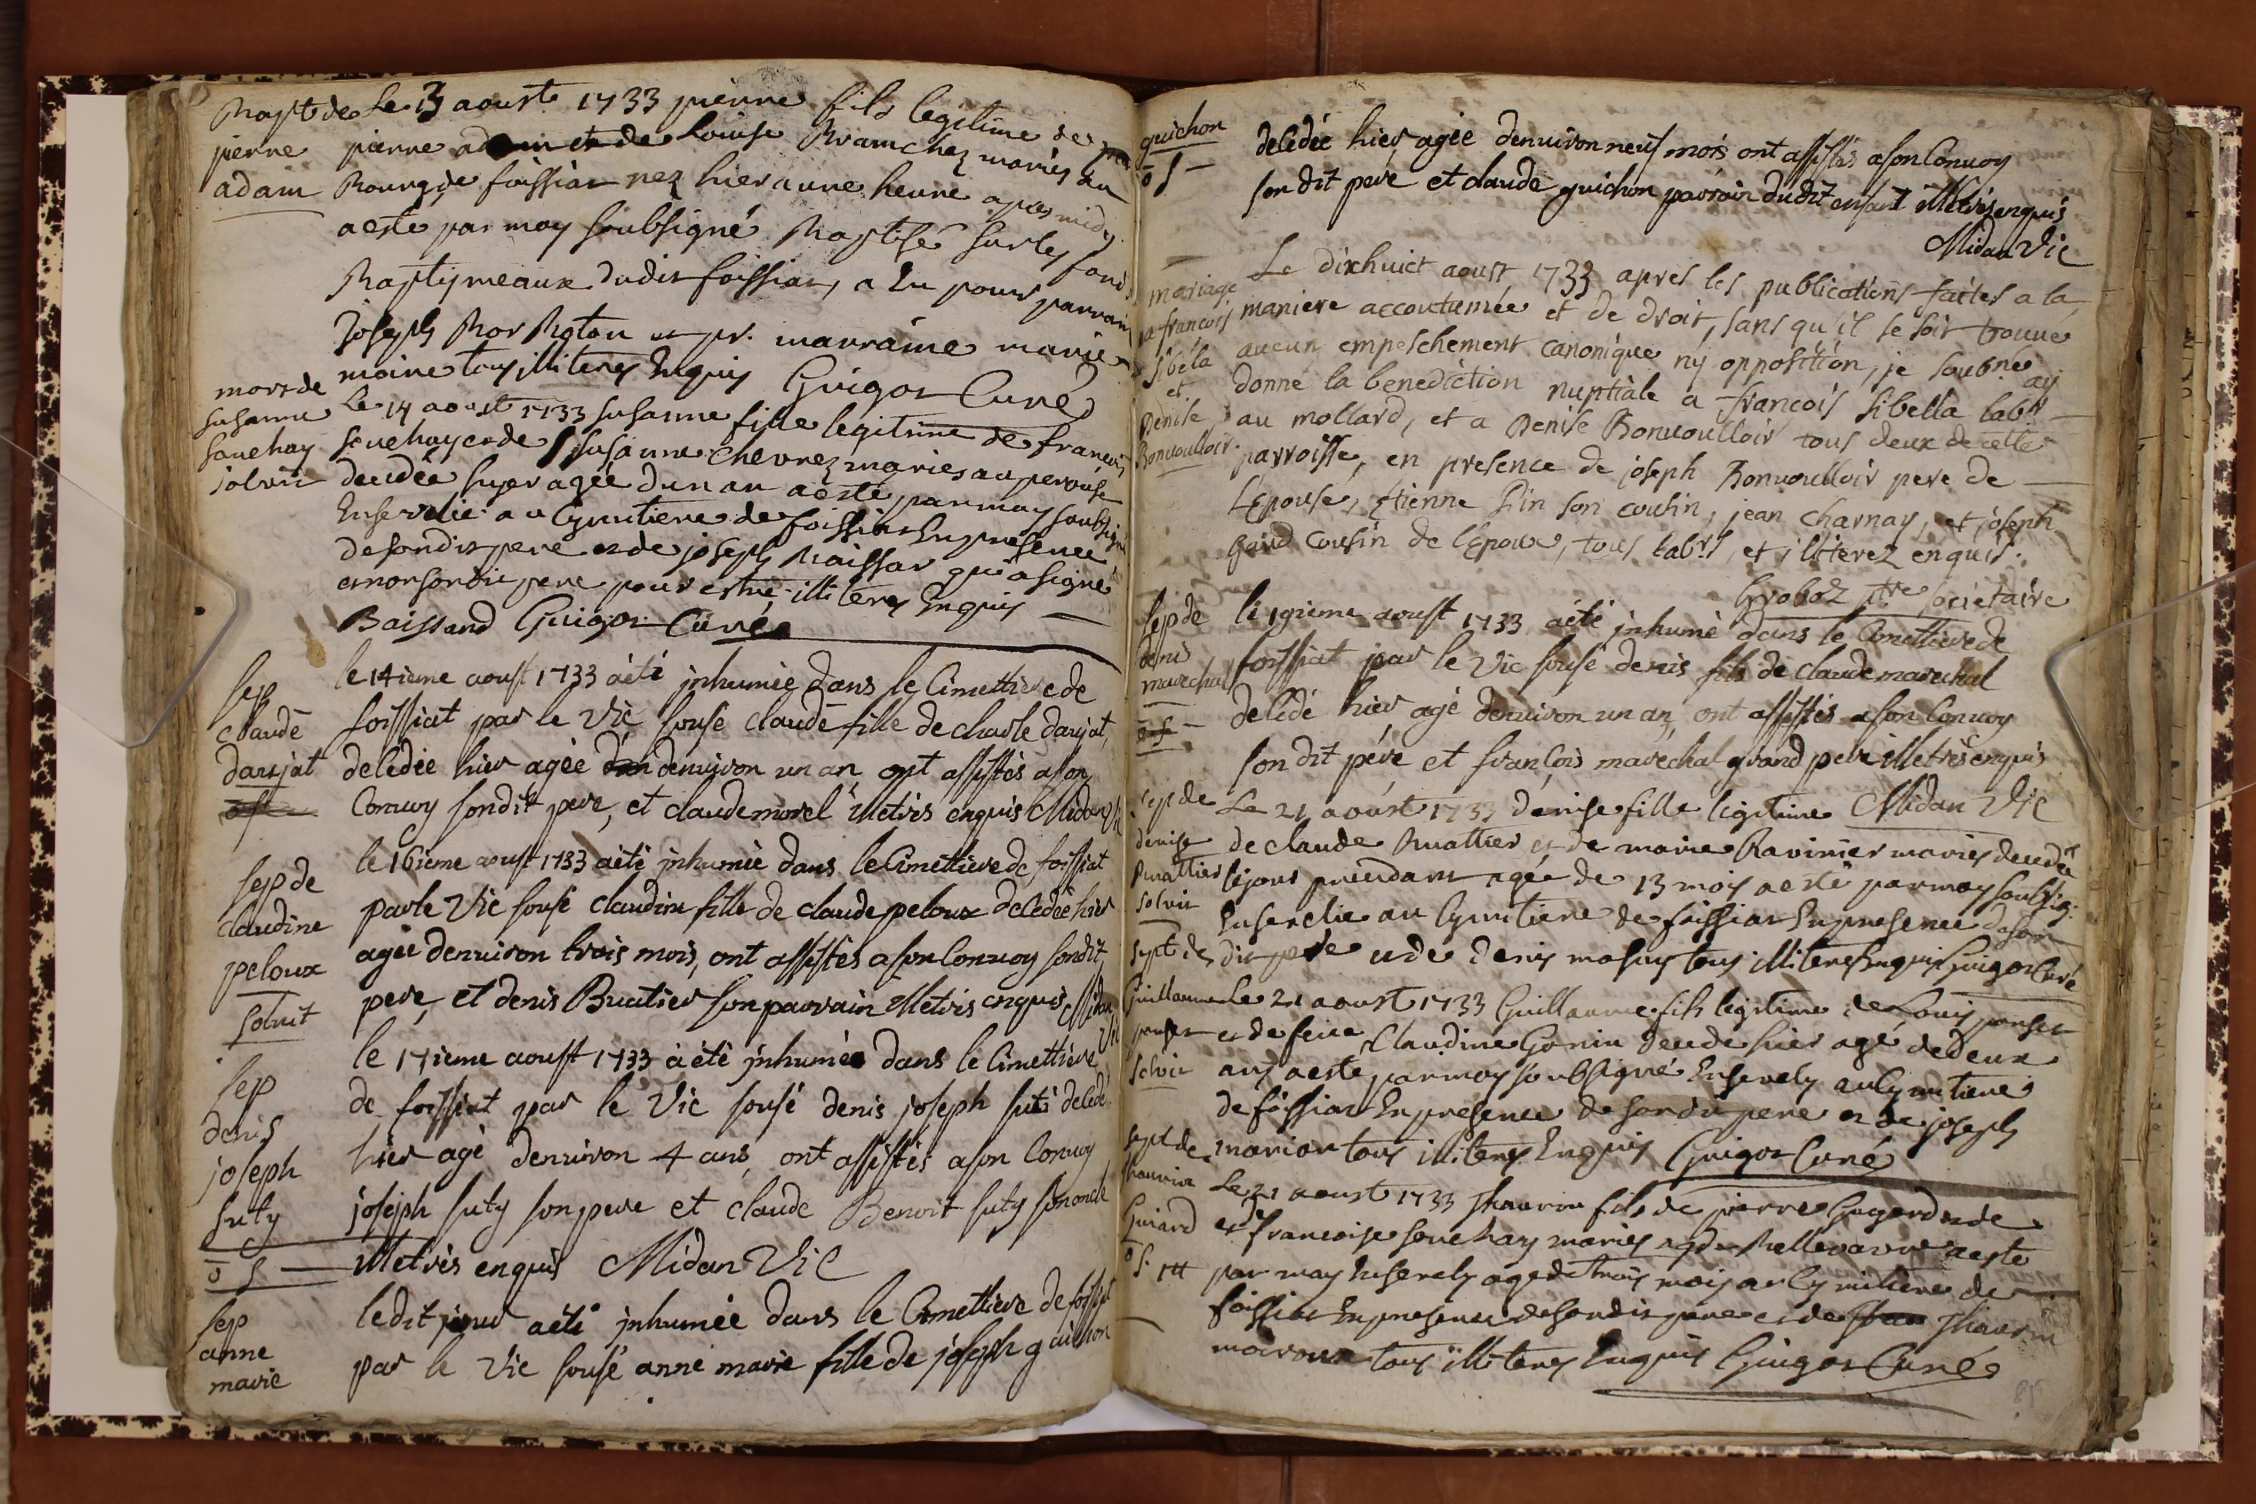 Bapt de
pierre
adam
Le 13 aoust 1733 pierre fils legitime de
pierre adam et de Louise Branchez mariés au
Bourg de foissiat nez hier a une heure apres midy
a esté par moy soubsigné Baptisé sur les fonds
Baptismeaux dudit foissiat, a Eu pour parrain
Joseph et pr. marraine marie
moine tous illiteres Enquis Guigot Curé
mort de
susanne
souchay
solvit
Le 14 aoust 1733 susanne fille legitime de francois
souchay et de susanne chevrez mariés au perouse
decedée hyer agée dun an a esté par moy soubsigné
Ensevelie au Cymitiere de foissiat En presence
de sondit pere et de joseph Baissar qui a signé
et non sondit pere pour estre illiteres Enquis
Baissand Guigot Curé
sep
claude
danjat
le 14ieme aoust 1733 a été jnhumée dans le Cimettiere de
foissiat par le Vic sousé claude fille de charle danjat,
decédée hier agée denuiron un an ont assistés a son
Conuoy sondit pere, et claude morel illetrés enquis Midan Vic
sep de
claudine
peloux
soluit
le 16ieme aoust 1733 a été jnhumée dans le Cimettiere de foissiat
par le Vic sousé claudine fille de claude peloux decedée hier
agée denuiron trois mois, ont assistés a son Conuoy sondit
pere, et denis Buatier son parrain illetrés enquis Midan
Vic
sep
denis
joseph
suty
o s
le 17ieme aoust 1733 a été jnhumé dans le Cimettiere
de foissiat par le Vic sousé denis joseph suti decedé
hier agé denuiron 4 ans, ont assistés a son Conuoy
joseph suty son pere et claude Benoit suty son oncle
illetrés enquis Midan Vic
sep
anne
marie
ledit jour a été jnhumée dans le Cimettiere de foissiat
par le Vic sousé anne marie fille de joseph guichon
guichon
o s
decedée hier agée denuiron neuf mois ont assistés a son Conuoy
son dit pere et claude guichon parrain dudit enfant illetrés enquis
Midan Vic
mariage
françois
sibela
et
Denise
Bonuoulloir
Le dixhuict aoust 1733 apres les publications faites a la
maniere accoutumée et de droit, sans qu'il se soit trouué
aucun empeschement canonique ny opposition, je soubné ay
donné la benediction nuptiale a françois sibella labr
au mollard, et a Denise Bonuoulloir tous deux de cette
parroisse, en presence de joseph Bonuoulloir pere de
L'Epouse, Etienne Pin son cousin, jean charnay, et joseph
gaud cousin de l'Epoux, tous labrs, et illiterez enquis.
Groboz ptre societaire
sep de
denis
marechal
le 19ieme aoust 1733 a été jnhumé dans le Cimettiere de
foissiat par le Vic sousé denis fils de claude marechal
decédé hier agé denuiron un an, ont assistés a son Conuoy
son dit pére et françois marechal grand pere illetrés enquis
Midan Vic
sep de
denise
Buattier
solvit
Le 21 aoust 1733 denise fille legitime
de claude Buattier et de marie Ravinier mariés decedée
le jour precedant agée de 13 mois a esté par moy soubsig:
Ensevelie au Cymitiere de foissiat En presence de son
dit pere et de Denis tous illiteres Enquis Guigot Curé
sept de
Guillaume
ponset
solvit
Le 21 aoust 1733 Guillaume fils legitime de Louis ponset
et de feüe Claudine Gonin decedé hier agé de deux
ans a esté par moy soubsigné Ensevely au Cymitiere
de foissiat En presence de sondit pere et de joseph
marion tous illiteres Enquis Guigot Curé
sept de
Guiard
Le 21 aoust 1733 fils de pierre et
de francoise souchay mariés a esté
par moy Ensevely agé de trois mois au Cymitiere de
foissiat En presence de sondit pere et de
tous illiteres Enquis Guigot Curé